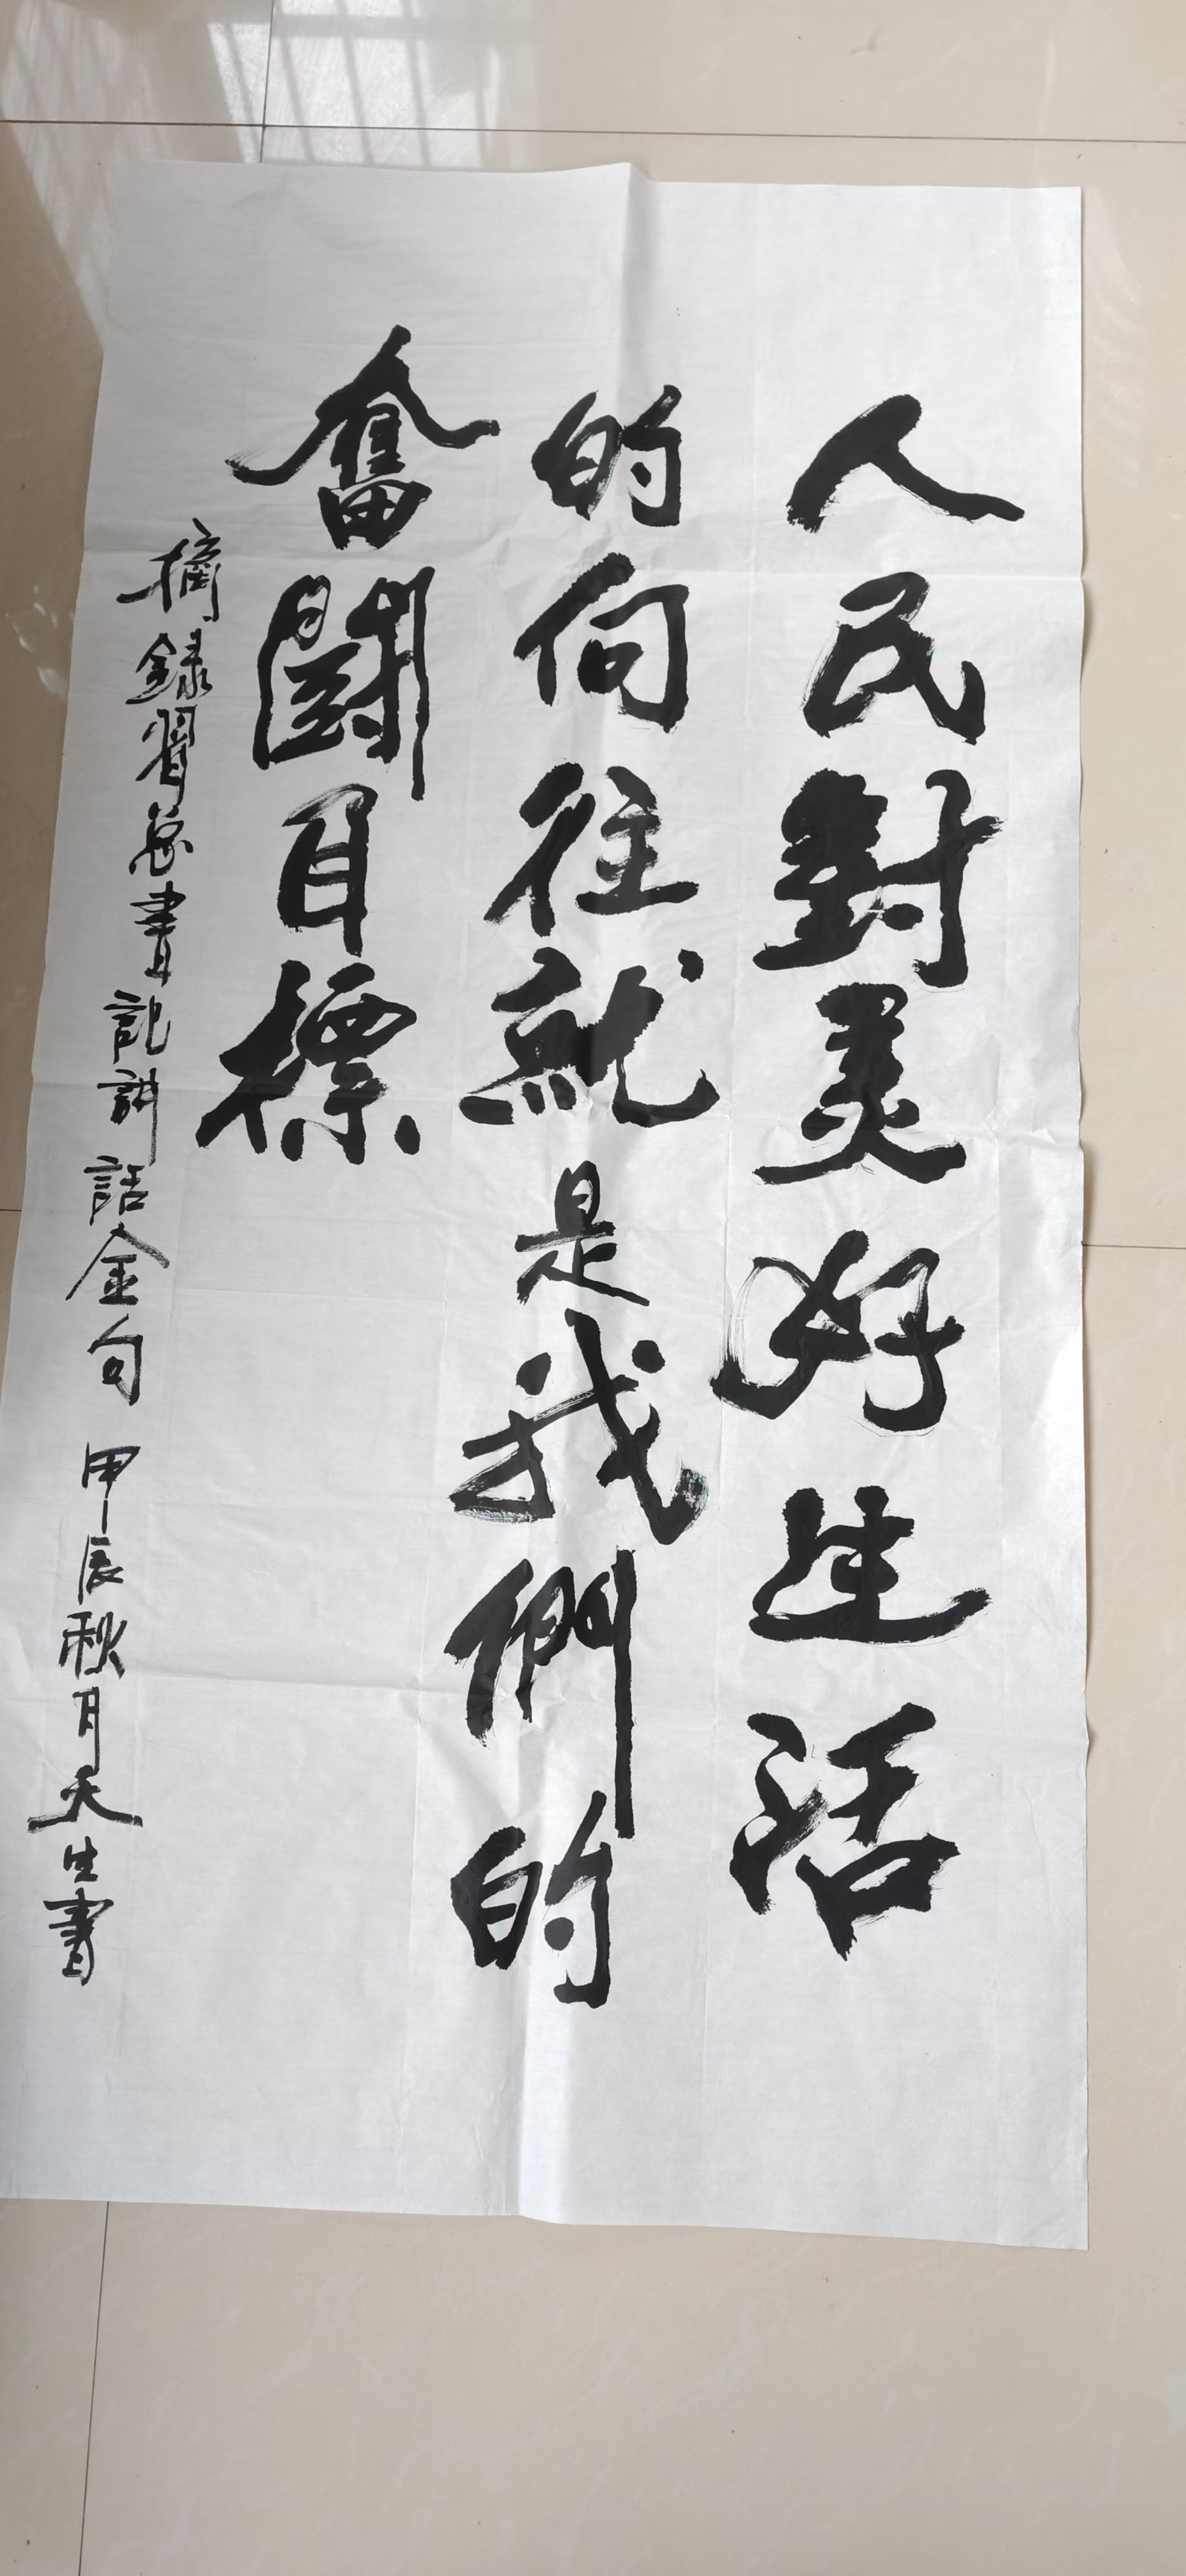 人民對美好生活
的向往就是我們的
奮鬪目標
摘録習总書記講話金句 甲辰秋月天生書